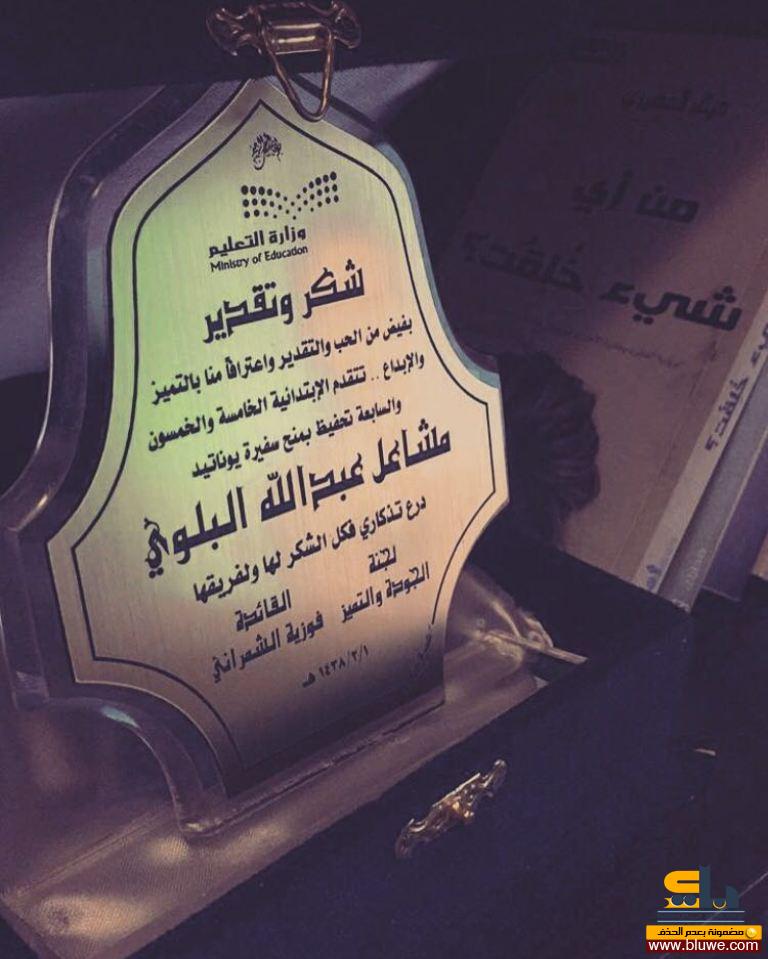 وزارة التعليم
Ministry of Education
شكر وتقدير
بفيض من الحب والتقدير واعترافاً منا بالتميز
والإبداع .. تتقدم الإبتدائية الخامسة والخمسون
والسابعة تحفيظ بمنح سفيرة يوناتيد
مشاعل عبدالله البلوي
درع تذكاري فكل الشكر لها ولفريقها
لجنة
الجودة والتميز
القائدة
فوزية الشمراني
١٤٣٨/٣/١ هـ
من أي
شيء خُلقت؟
خلقت؟
مضمونة بعدم الحذف
www.bluwe.com